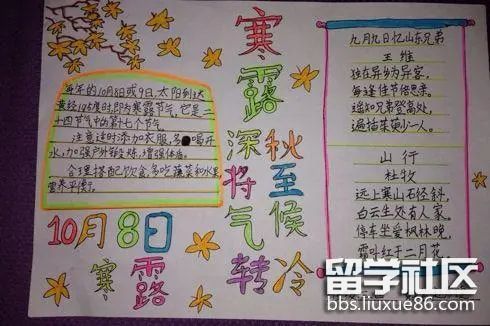 每年的10月8日或9日,太阳到达
黄经195度时,即为寒露节气,它是二
十四节气中的第十七个节气
注意适时添加衣服,多喝开
水,加强户外锻炼,增强体质。
合理搭配饮食,多吃蔬菜和水果,
营养平衡。
10月8日
寒露
寒露
深秋
将至
气候
转冷
九月九日忆山东兄弟
王维
独在异乡为异客,
每逢佳节倍思亲。
遥知兄弟登高处,
遍插茱萸少一人。
山行
杜牧
远上寒山石径斜,
白云生处有人家。
停车坐爱枫林晚,
霜叶红于二月花。
留学社区
bbs.liuxue86.com